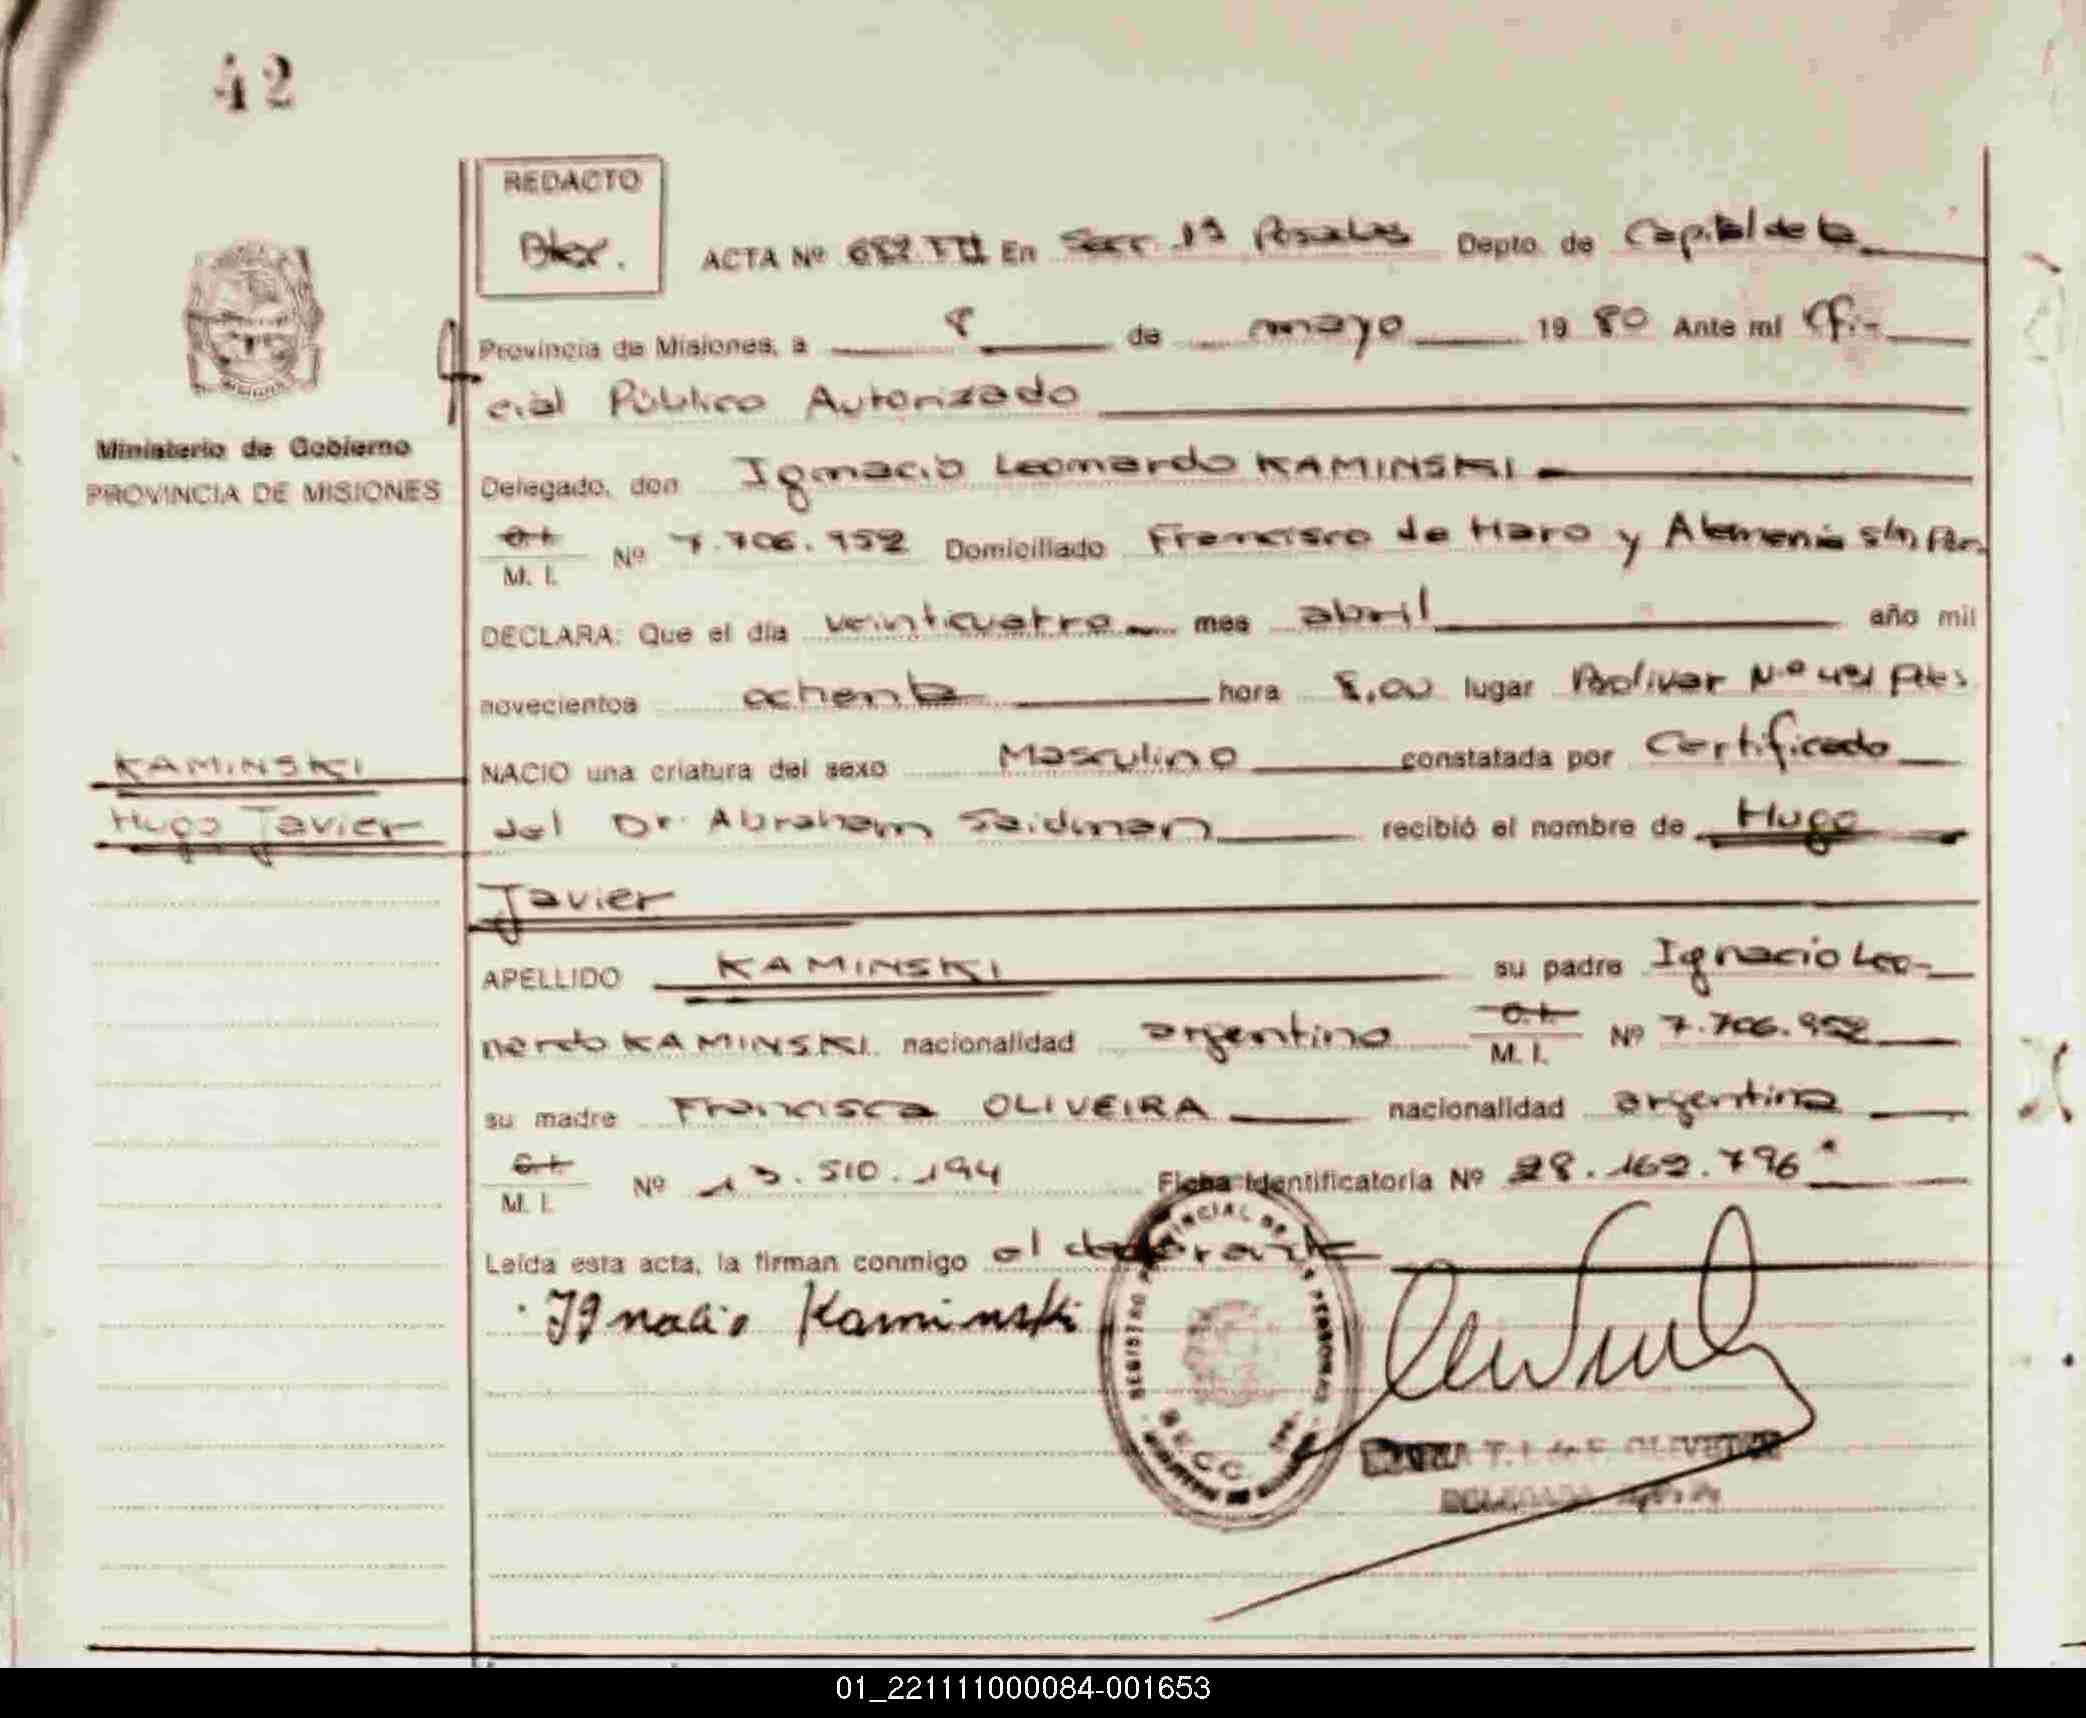 42
REDACTO
ACTA Nº 682 En Secc. 1ª Posadas Depto. de Capital de la
Provincia de Misiones, a 8 de mayo 19 80 Ante mi Ofi-
cial Público Autorizado
Ministerio de Gobierno
PROVINCIA DE MISIONES
Delegado, don Ignacio Leonardo KAMINSKI
M. I. Nº 7.706.952 Domiciliado Francisco de Haro y Alemania s/n
DECLARA: Que el día veinticuatro mes abril año mil
novecientos ochenta hora 8,00 lugar Bolivar Nº 431 Pdas
NACIO una criatura del sexo Masculino constatada por Certificado
KAMINSKI
Hugo Javier
del Dr. Abraham Seidman recibió el nombre de Hugo
Javier
APELLIDO KAMINSKI su padre Ignacio Leo-
nardo KAMINSKI nacionalidad argentino M. I. Nº 7.706.952
su madre Francisca OLIVEIRA nacionalidad argentina
M. I. Nº 13.510.194 Ficha Identificatoria Nº 28.162.796
Leída esta acta, la firman conmigo el declarante
Ignacio Kaminski
REGISTRO PROVINCIAL DE
T. I. de F. OLIVEIRA
DELEGADA
01_221111000084-001653